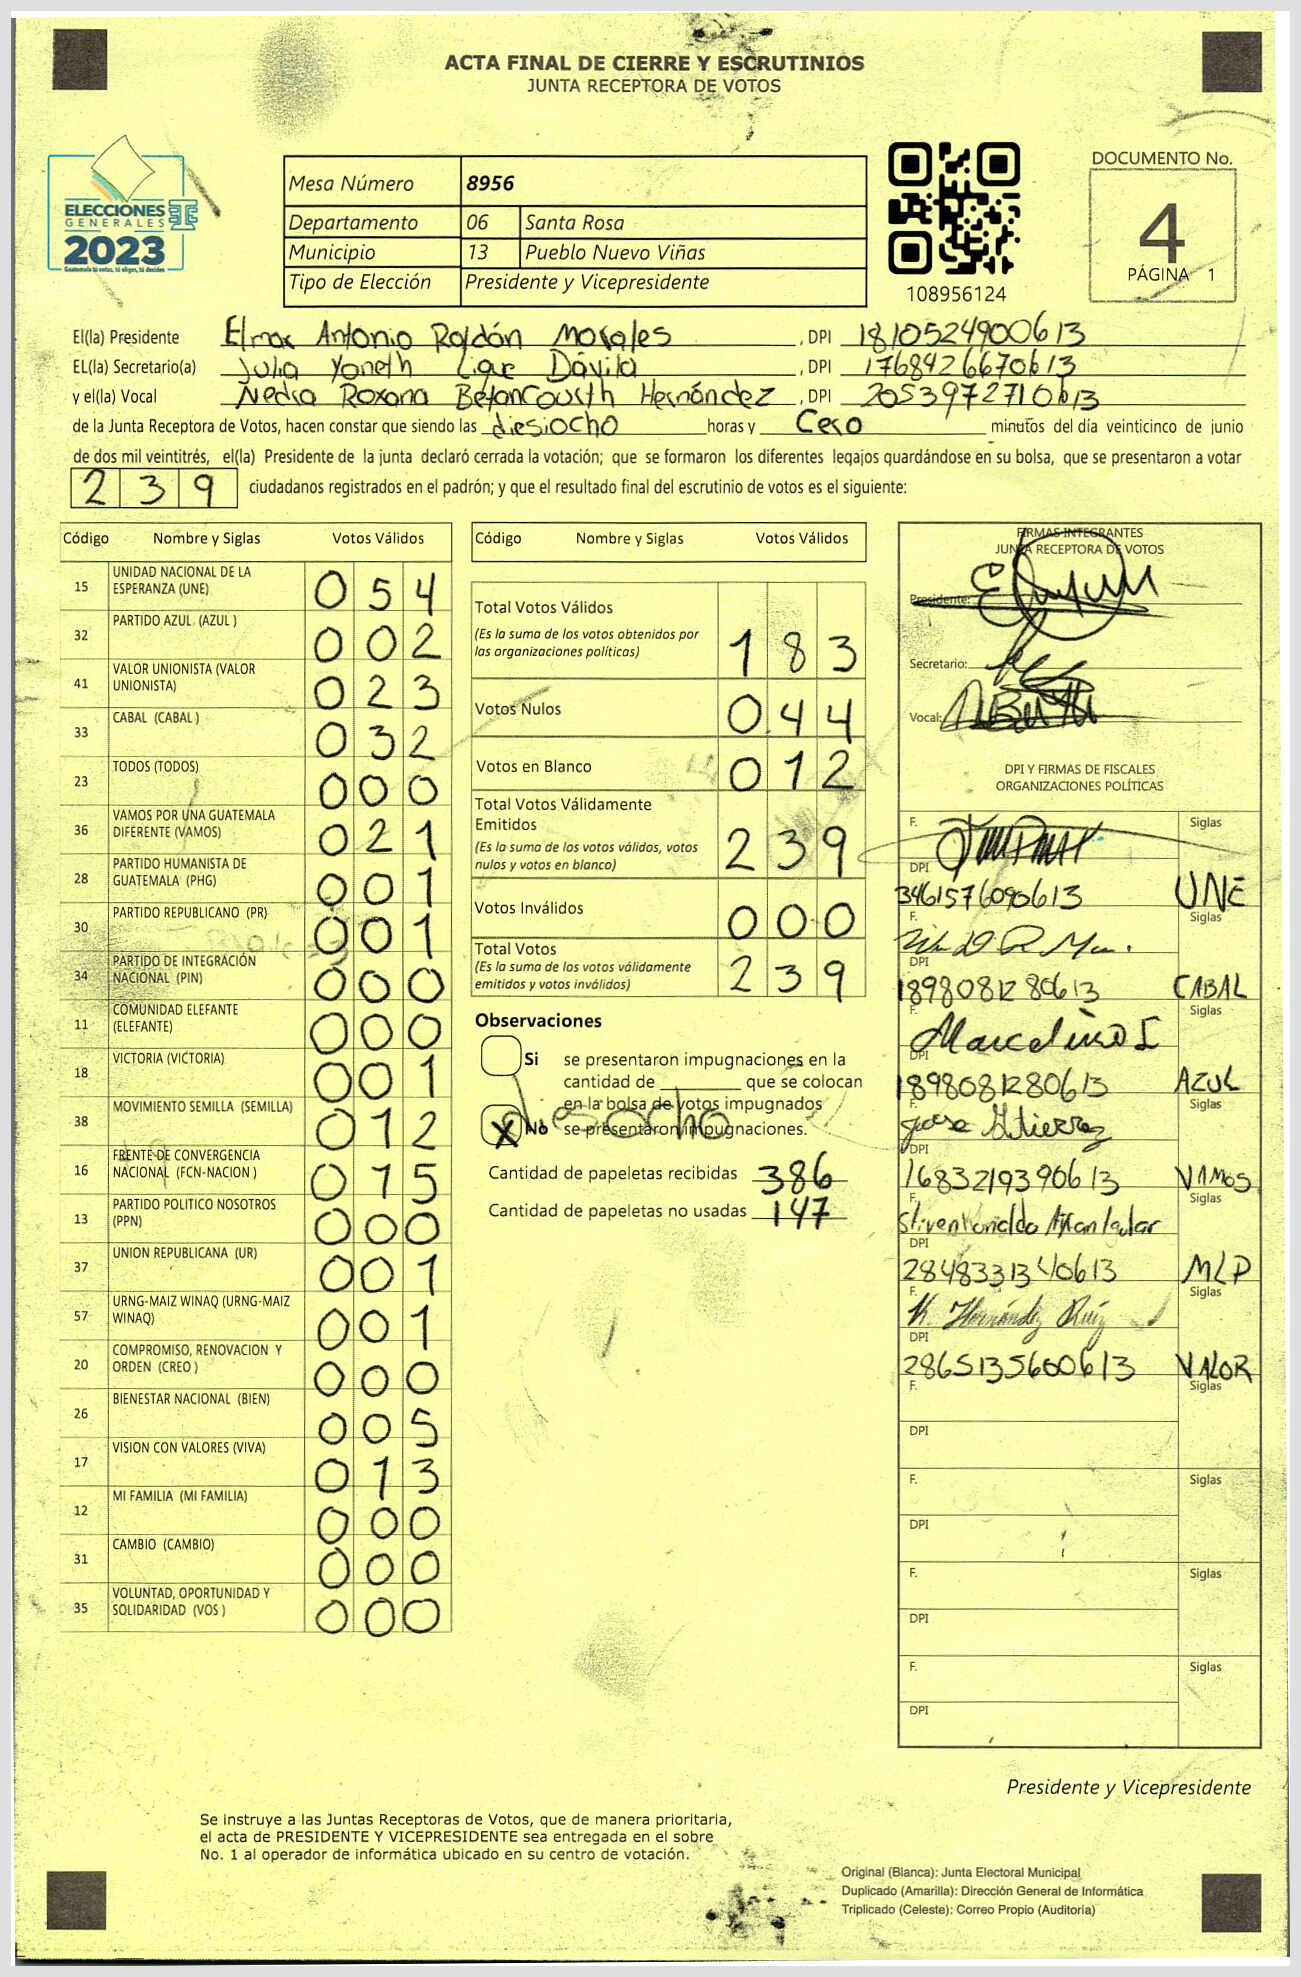 ACTA FINAL DE CIERRE Y ESCRUTINIOS
JUNTA RECEPTORA DE VOTOS
ELECCIONES
GENERALES
2023
Guatemala tú votas, tú eliges, tú decides
Mesa Número 8956
Departamento 06 Santa Rosa
Municipio 13 Pueblo Nuevo Viñas
Tipo de Elección Presidente y Vicepresidente
108956124
DOCUMENTO No.
4
PÁGINA 1
El(la) Presidente Elmar Antonio Roldán Morales, DPI 1810524900613
EL(la) Secretario(a) Julia Yoneth Lique Dávila, DPI 1768426670613
y el(la) Vocal Nedra Roxana Betancourth Hernández, DPI 2053972710613
de la Junta Receptora de Votos, hacen constar que siendo las diesiocho horas y Cero minutos del día veinticinco de junio
de dos mil veintitrés, el(la) Presidente de la junta declaró cerrada la votación; que se formaron los diferentes legajos guardándose en su bolsa, que se presentaron a votar
239 ciudadanos registrados en el padrón; y que el resultado final del escrutinio de votos es el siguiente:
Código Nombre y Siglas Votos Válidos
15 UNIDAD NACIONAL DE LA ESPERANZA (UNE) 054
32 PARTIDO AZUL (AZUL ) 002
41 VALOR UNIONISTA (VALOR UNIONISTA) 023
33 CABAL (CABAL ) 032
23 TODOS (TODOS) 000
36 VAMOS POR UNA GUATEMALA DIFERENTE (VAMOS) 021
28 PARTIDO HUMANISTA DE GUATEMALA (PHG) 001
30 PARTIDO REPUBLICANO (PR) 001
34 PARTIDO DE INTEGRACIÓN NACIONAL (PIN) 000
11 COMUNIDAD ELEFANTE (ELEFANTE) 000
18 VICTORIA (VICTORIA) 001
38 MOVIMIENTO SEMILLA (SEMILLA) 012
16 FRENTE DE CONVERGENCIA NACIONAL (FCN-NACION ) 015
13 PARTIDO POLITICO NOSOTROS (PPN) 000
37 UNION REPUBLICANA (UR) 001
57 URNG-MAIZ WINAQ (URNG-MAIZ WINAQ) 001
20 COMPROMISO, RENOVACION Y ORDEN (CREO ) 000
26 BIENESTAR NACIONAL (BIEN) 005
17 VISION CON VALORES (VIVA) 013
12 MI FAMILIA (MI FAMILIA) 000
31 CAMBIO (CAMBIO) 000
35 VOLUNTAD, OPORTUNIDAD Y SOLIDARIDAD (VOS ) 000
Código Nombre y Siglas Votos Válidos
Total Votos Válidos
(Es la suma de los votos obtenidos por
las organizaciones políticas) 183
Votos Nulos 044
Votos en Blanco 012
Total Votos Válidamente
Emitidos
(Es la suma de los votos válidos, votos
nulos y votos en blanco) 239
Votos Inválidos 000
Total Votos
(Es la suma de los votos válidamente
emitidos y votos inválidos) 239
Observaciones
Si se presentaron impugnaciones en la
cantidad de ________ que se colocan
en la bolsa de votos impugnados
diesocho
X No se presentaron impugnaciones.
Cantidad de papeletas recibidas 386
Cantidad de papeletas no usadas 147
FIRMAS INTEGRANTES
JUNTA RECEPTORA DE VOTOS
Presidente:
Secretario:
Vocal:
DPI Y FIRMAS DE FISCALES
ORGANIZACIONES POLÍTICAS
F. Siglas
DPI 3461576090613 UNE
F. Siglas
DPI 1898081280613 CABAL
F. Marcelino I Siglas
DPI 1898081280613 AZUL
F. Jose Gutierrez Siglas
DPI 1683219390613 VAMOS
F. Siglas
DPI 2848331340613 MLP
F. K. Hernández Ruiz Siglas
DPI 2865135600613 VALOR
F. Siglas
DPI
F. Siglas
DPI
F. Siglas
DPI
F. Siglas
DPI
Presidente y Vicepresidente
Se instruye a las Juntas Receptoras de Votos, que de manera prioritaria,
el acta de PRESIDENTE Y VICEPRESIDENTE sea entregada en el sobre
No. 1 al operador de informática ubicado en su centro de votación.
Original (Blanca): Junta Electoral Municipal
Duplicado (Amarilla): Dirección General de Informática
Triplicado (Celeste): Correo Propio (Auditoría)